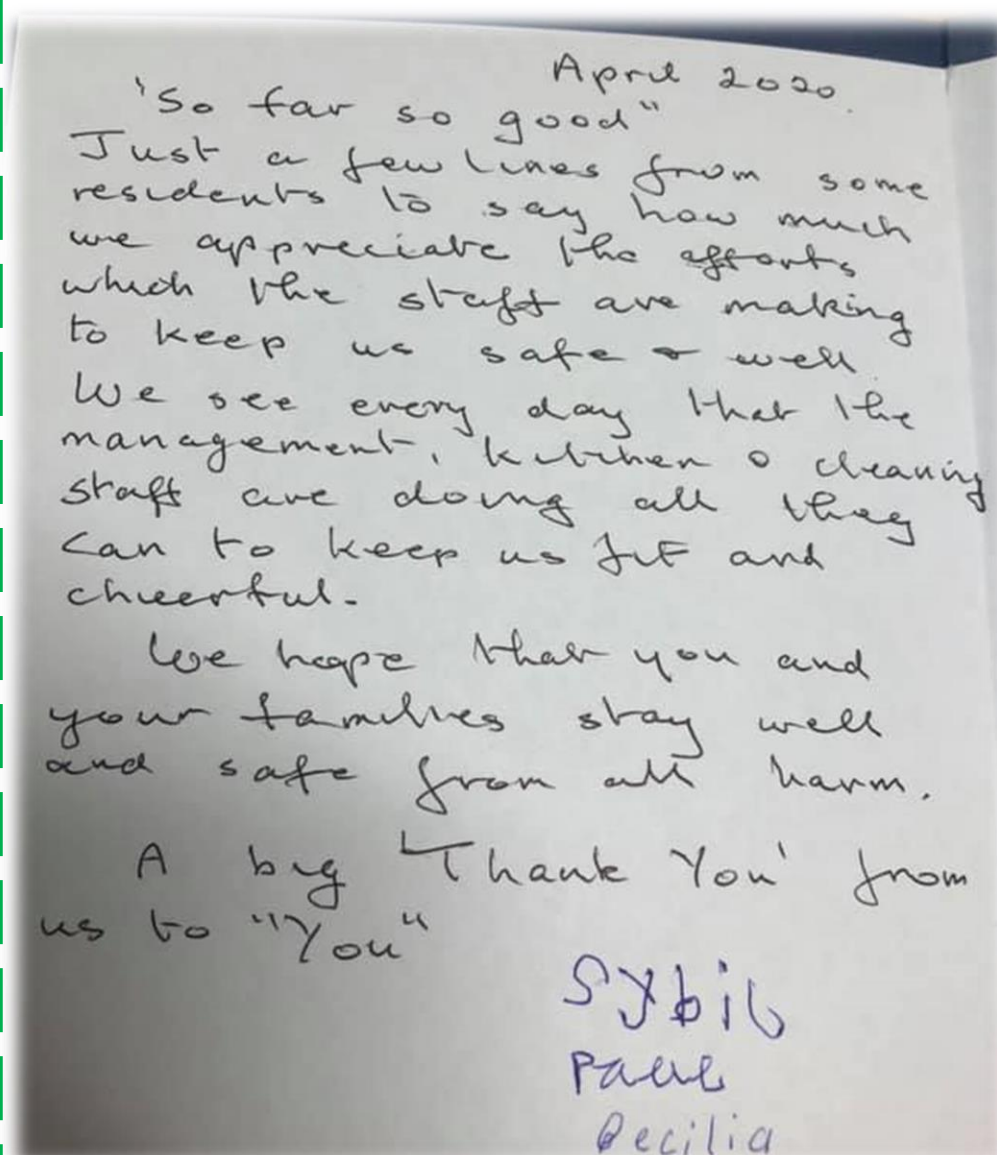 April 2020.
'So far so good"
Just a few lines from some
residents to say how much
we appreciate the efforts
which the staff are making
to keep us safe & well.
We see every day that the
management, kitchen & cleaning
staff are doing all they
can to keep us fit and
cheerful.
We hope that you and
your families stay well
and safe from all harm.
A big 'Thank You' from
us to "You"
Sybil
Paul
Cecilia